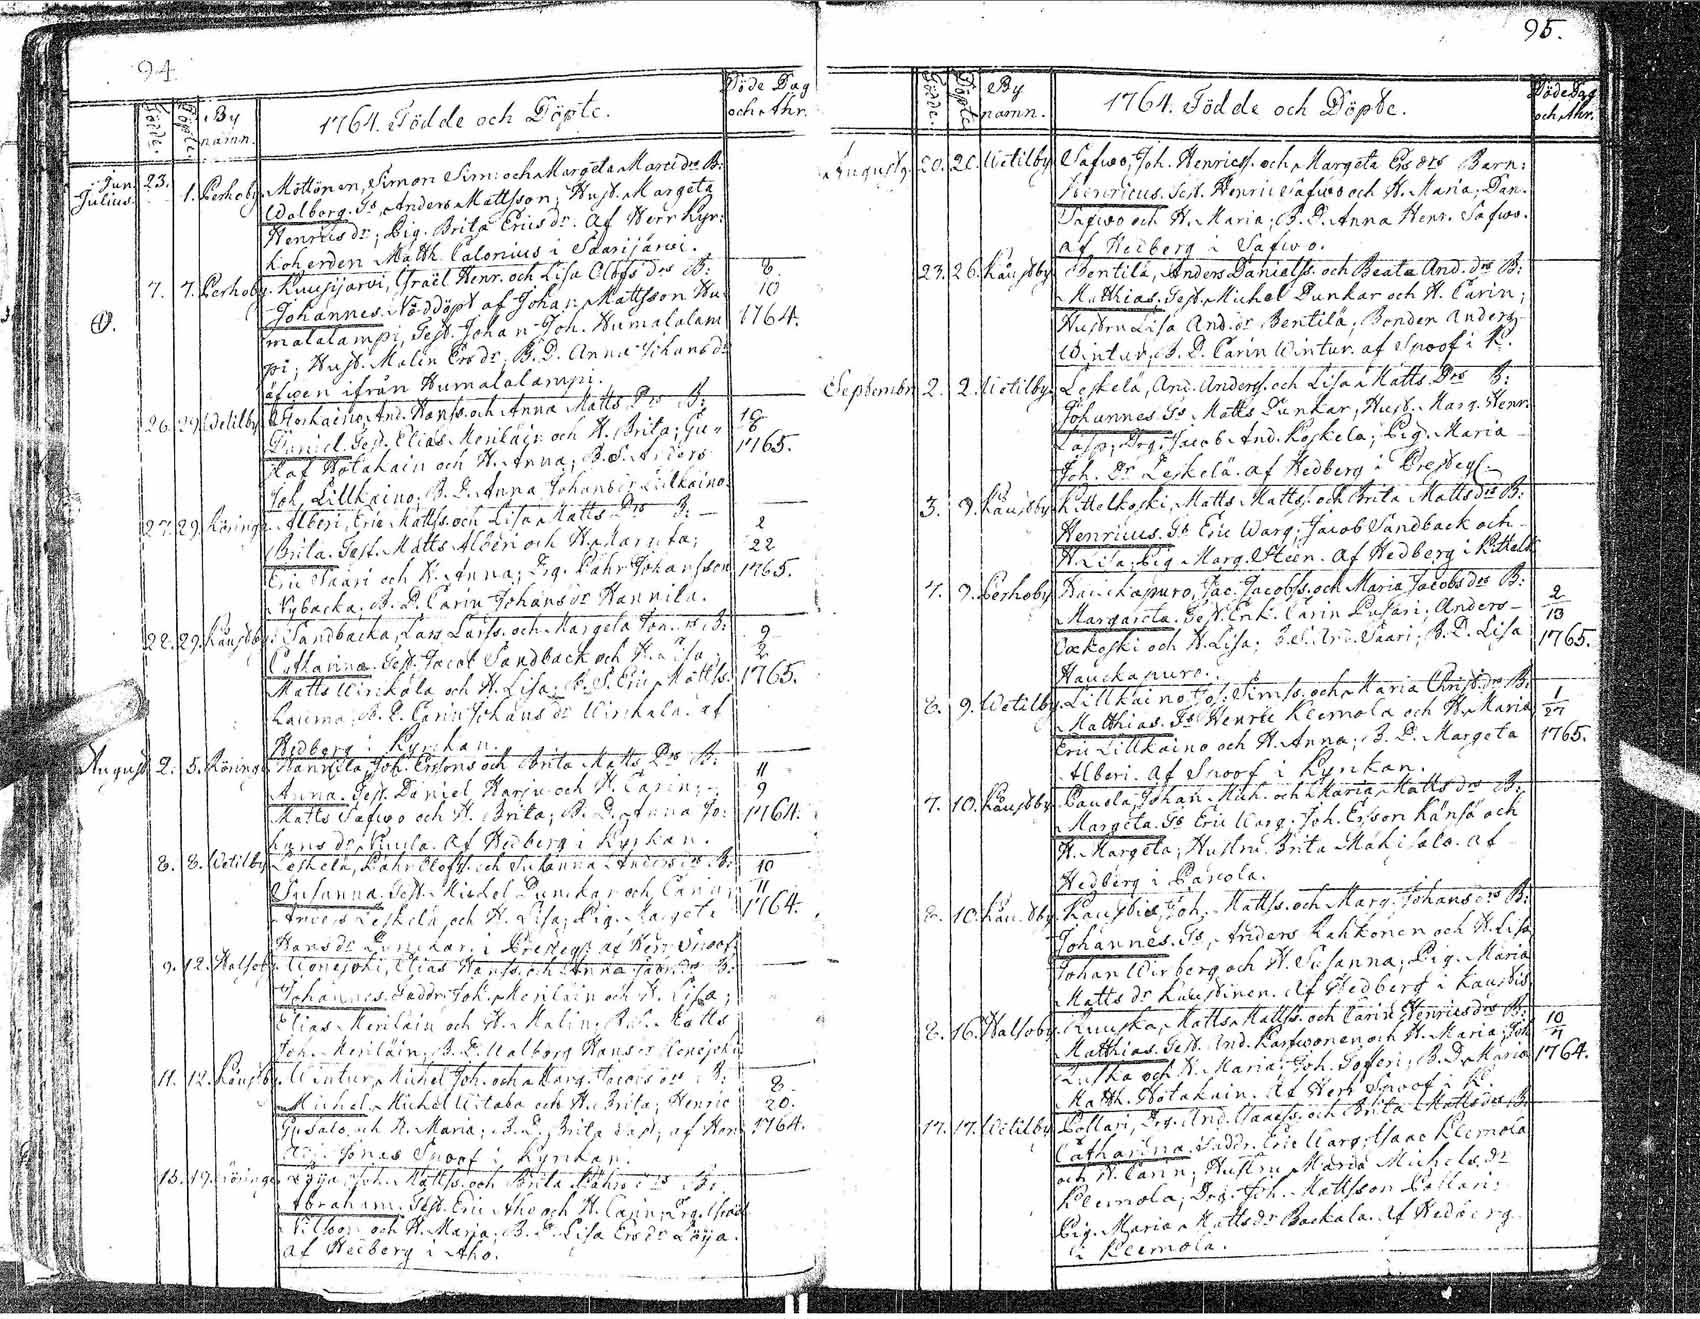 94
Födde. Döpte. By namn. 1764. Födde och Döpte. Döde Dag och Åhr.
Jun. 23. 1. Perhoby. Möttönen, Simon Sim: och Margeta Marci drs B:
Julius Walborg. Ts. Anders Mattsson; Hust. Margeta
Henrics dr; Pig. Brita Erics dr. af Herr Kyr-
koherden Matth. Calonius i Saarijärvi.
7. 7. Perhoby. Kuusijärvi, Israël Henr. och Lisa Olofs drs B: 8.
Johannes. Nöddöpt af Johan Mattsson Hu- 10
malalampi, Test. Johan Joh. Humalalam 1764.
pi; Hust. Malin Ers dr; B. D. Anna Johans dr
äfwen ifrån Humalalampi.
26. 29. Wetilby Storkaino, And. Hanss. och Anna Matts Drs B: 18
Daniel. Test. Elias Meriläin och H. Brita; Gu- 8
staf Hotakain och H. Anna; B. S. Anders 1765.
Joh. Lillkaino; B. D. Anna Johans dr Lillkaino.
27. 29. Röringe Alberi, Eric Mattss. och Lisa Matts Drs B: 2
Brita. Test. Matts Alberi och H. Margeta; 22
Eric Saari och H. Anna; Drg. Pähr Johansson 1765.
Nybacka; B. D. Carin Johans dr Hannila.
22. 29. Kaustby Sandbacka, Lars Larss. och Margeta drs B: 9
Catharina. Test. Jacob Sandback och H. Lisa; 2
Matts Wirkala och H. Lisa; B. S. Eric Mattss. 1765.
B. D. Carin Johans dr Wirkala. af
Hedberg i Kyrkan.
August. 2. 5. Röringe Hannila, Joh. Erssons och Brita Matts Drs B: 11
Anna. Test. Daniel Harju och H. Carin; 9
Matts Safwo och H. Brita; B. D. Anna Jo- 1764.
hans dr. af Hedberg i Kyrkan.
8. 8. Wetilby Leskelä, Pähr Olofss. och Susanna Anders drs B: 10
Susanna. Test. Michel Dunckar och Carin; 11
Anders Leskelä och H. Lisa; Pig. Margeta 1764.
Hans dr Dunckar. i Presteg. af Herr Snoof
9. 12. Halsoby Wonejoki, Elias Hanss. och Anna drs B:
Johannes. Faddr. Joh. Meriläin och H. Lisa;
Elias Meriläin och H. Malin; B. S. Matts
Joh. Meriläin; B. D. Walborg Hans dr Wonejoki
11. 12. Kaustby. Wintur, Michel Joh. och Marg. Jacobs drs B: 8
Michel. Michel Witaba och H. Brita; Henric 20.
och H. Maria; B. D. Brita; af Herr 1764.
Jonas Snoof i Kyrkan.
15. 19. Röringe Löija, Joh. Mattss. och Brita Pährs drs B:
Abraham. Test. Eric Aho och H. Carin; Drg. Israel
Nilsson och H. Maria; B. D. Lisa Ers dr Löija.
af Hedberg i Aho.
95.
Födde. Döpte. By namn. 1764. Födde och Döpte. Döde Dag och Åhr.
Augusty. 20. 20. Wetilby Safwo, Joh. Henricss. och Margeta Ers drs Barn:
Henricus. Test. Henric Safwo och H. Maria; Dan.
Safwo och H. Maria; B. D. Anna Henr. Safwo.
af Hedberg i Safwo.
23. 26. Kaustby Bentilä, Anders Danielss. och Beata And. drs B:
Matthias. Test. Michel Dunkar och H. Carin;
Hustru Lisa And. dr Bentilä; Bonden Anders
Wintur; B. D. Carin Wintur. af Snoof i K.
Septembr. 2. 2. Wetilby. Leskelä, And. Anderss. och Lisa Matts Drs B:
Johannes. Ts Matts Dunkar, Hust. Marg. Henr.
Drg. Jacob And. Koskela; Pig. Maria
Joh. Dr Leskelä. af Hedberg i Presteg.
3. 9. Kaustby. Kittelkoski, Matts Mattss. och Brita Matts drs B:
Henricus. Ts Eric Warg; Jacob Sandback och
H. Lisa; Pig. Marg. Steen. af Hedberg i Kittelk
7. 9. Perhoby Hauckapuro, Jac. Jacobss. och Maria Jacobs drs B: 2
Margareta. Test. Enk. Carin Pusari; Anders 13
och H. Lisa; B. S. And. Saari; B. D. Lisa 1765.
Hauckapuro.
8. 9. Wetilby. Lillkaino, Jos. Simss. och Maria Christ. drs B: 1
Matthias. Ts Henric Klemola och H. Maria 27
Eric Lillkaino och H. Anna; B. D. Margeta 1765.
Alberi. af Snoof i Kyrkan.
7. 10. Kaustby Pauola, Johan Mich. och Maria Matts drs B:
Margeta. Ts Eric Warg; Joh. Ersson Känsä och
H. Margeta; Hustru Brita Mäkisalo. af
Hedberg i Pauola.
8. 10. Kaustby Kaustis, Joh. Mattss. och Marg. Johans drs B:
Johannes. Ts. Anders Kahkonen och H. Lisa
Johan Wirberg och H. Susanna; Pig. Maria
Matts dr Kaustinen. af Hedberg i Kaustis
8. 16. Halsoby. Ruuska, Matts Mattss. och Carin Henrics drs B: 10
Matthias. Test. And. Karhwonen och H. Maria; Joh. 7
Ruska och H. Maria; Joh. Tofferi; B. D. Maria 1764.
Matth. Hotakain. af Herr Snoof i K.
17. 17. Wetilby Pollari, Drg. And. Isaacss. och Brita Matts drs B:
Catharina. Faddr. Eric Warg; Isaac Klemola
och H. Carin; Hustru Maria Michels dr
Klemola; Drg. Joh. Mattsson Pollari;
Pig. Maria Matts dr Backala. af Hedberg
i Klemola.